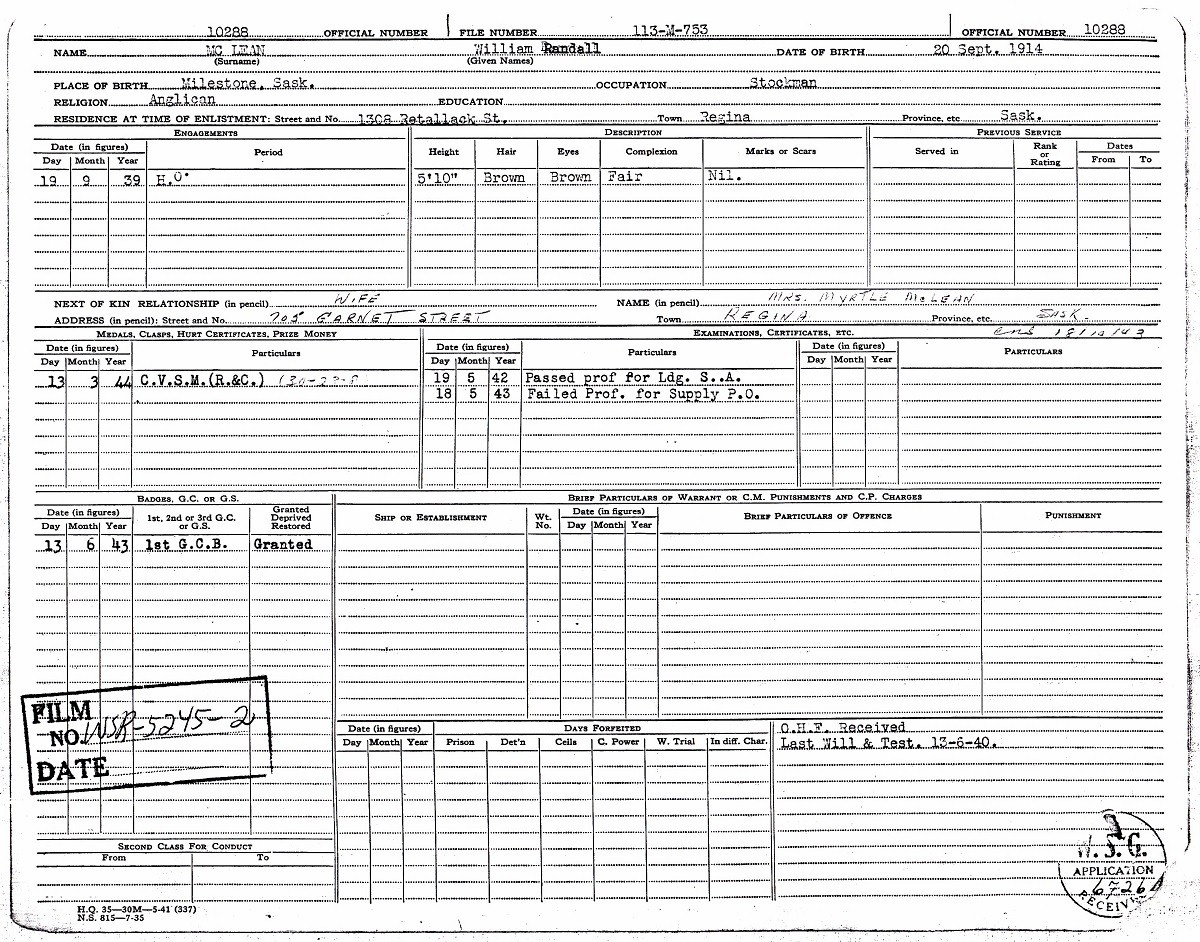 10288 OFFICIAL NUMBER FILE NUMBER 113-M-753 OFFICIAL NUMBER 10288
NAME MC LEAN William Randall DATE OF BIRTH 20 Sept. 1914
(Surname) (Given Names)
PLACE OF BIRTH Milestone, Sask. OCCUPATION Stockman
RELIGION Anglican EDUCATION
RESIDENCE AT TIME OF ENLISTMENT: Street and No. 1308 Retallack St. Town Regina Province, etc. Sask.
ENGAGEMENTS DESCRIPTION PREVIOUS SERVICE
Date (in figures) Period Height Hair Eyes Complexion Marks or Scars Served in Rank or Rating Dates
Day Month Year From To
19 9 39 H.O. 5'10" Brown Brown Fair Nil.
NEXT OF KIN RELATIONSHIP (in pencil) WIFE NAME (in pencil) MRS. MYRTLE McLEAN
ADDRESS (in pencil): Street and No. 705 GARNET STREET Town REGINA Province, etc. SASK.
MEDALS, CLASPS, HURT CERTIFICATES, PRIZE MONEY EXAMINATIONS, CERTIFICATES, ETC. 18/10/43
Date (in figures) Particulars Date (in figures) Particulars Date (in figures) PARTICULARS
Day Month Year Day Month Year Day Month Year
13 3 44 C.V.S.M.(R.&C.) 19 5 42 Passed prof for Ldg. S..A.
18 5 43 Failed Prof. for Supply P.O.
BADGES, G.C. OR G.S. BRIEF PARTICULARS OF WARRANT OR C.M. PUNISHMENTS AND C.P. CHARGES
Date (in figures) 1st, 2nd or 3rd G.C. or G.S. Granted Deprived Restored SHIP OR ESTABLISHMENT Wt. No. Date (in figures) BRIEF PARTICULARS OF OFFENCE PUNISHMENT
Day Month Year Day Month Year
13 6 43 1st G.C.B. Granted
FILM NO. NSR-5245-2
DATE
Date (in figures) DAYS FORFEITED
Day Month Year Prison Det'n Cells C. Power W. Trial In diff. Char.
O.H.F. Received
Last Will & Test. 13-6-40.
SECOND CLASS FOR CONDUCT
From To
W. S. G.
APPLICATION
RECEIVED
H.Q. 35—30M—5-41 (337)
N.S. 815—7-35